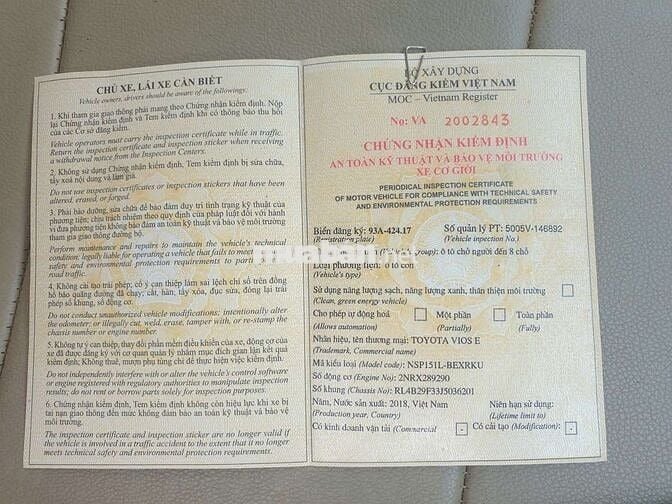 CHỦ XE, LÁI XE CẦN BIẾT
Vehicle owners, drivers should be aware of the followings:
1. Khi tham gia giao thông phải mang theo Chứng nhận kiểm định. Nộp
lại Chứng nhận kiểm định và Tem kiểm định khi có thông báo thu hồi
của các Cơ sở đăng kiểm.
Vehicle operators must carry the inspection certificate while in traffic.
Return the inspection certificate and inspection sticker when receiving
a withdrawal notice from the Inspection Centers.
2. Không sử dụng Chứng nhận kiểm định, Tem kiểm định bị sửa chữa,
tẩy xoá nội dung và làm giả.
Do not use inspection certificates or inspection stickers that have been
altered, erased, or forged.
3. Phải bảo dưỡng, sửa chữa để bảo đảm duy trì tình trạng kỹ thuật của
phương tiện; chịu trách nhiệm theo quy định của pháp luật đối với hành
vi đưa phương tiện không bảo đảm an toàn kỹ thuật và bảo vệ môi trường
tham gia giao thông đường bộ.
Perform maintenance and repairs to maintain the vehicle's technical
condition; legally liable for operating a vehicle that fails to meet
safety and environmental protection requirements to participate in
road traffic.
4. Không cải tạo trái phép; cố ý can thiệp làm sai lệch chỉ số trên đồng
hồ báo quãng đường đã chạy; cắt, hàn, tẩy xóa, đục sửa, đóng lại trái
phép số khung, số động cơ.
Do not conduct unauthorized vehicle modifications; intentionally alter
the odometer; or illegally cut, weld, erase, tamper with, or re-stamp the
chassis number or engine number.
5. Không tự ý can thiệp, thay đổi phần mềm điều khiển của xe, động cơ của
xe đã được đăng ký với cơ quan quản lý nhằm mục đích gian lận kết quả
kiểm định; Không thuê, mượn phụ tùng chỉ để thực hiện việc kiểm định.
Do not independently interfere with or alter the vehicle's control software
or engine registered with regulatory authorities to manipulate inspection
results; do not rent or borrow parts solely for inspection purposes.
6. Chứng nhận kiểm định, Tem kiểm định không còn hiệu lực khi xe bị
tai nạn giao thông đến mức không đảm bảo an toàn kỹ thuật và bảo vệ
môi trường.
The inspection certificate and inspection sticker are no longer valid if
the vehicle is involved in a traffic accident to the extent that it no longer
meets technical safety and environmental protection requirements.
BỘ XÂY DỰNG
CỤC ĐĂNG KIỂM VIỆT NAM
MOC – Vietnam Register
No: VA 2002843
CHỨNG NHẬN KIỂM ĐỊNH
AN TOÀN KỸ THUẬT VÀ BẢO VỆ MÔI TRƯỜNG
XE CƠ GIỚI
PERIODICAL INSPECTION CERTIFICATE
OF MOTOR VEHICLE FOR COMPLIANCE WITH TECHNICAL SAFETY
AND ENVIRONMENTAL PROTECTION REQUIREMENTS
Biển đăng ký: 93A-424.17 Số quản lý PT: 5005V-146892
(Registration plate) (Vehicle inspection No.)
group): ô tô chở người đến 8 chỗ
Loại phương tiện: ô tô con
(Vehicle's type)
Sử dụng năng lượng sạch, năng lượng xanh, thân thiện môi trường
(Clean, green energy vehicle)
Cho phép tự động hoá Một phần Toàn phần
(Allows automation) (Partially) (Fully)
Nhãn hiệu, tên thương mại: TOYOTA VIOS E
(Trademark, Commercial name)
Mã kiểu loại (Model code): NSP151L-BEXRKU
Số động cơ (Engine No): 2NRX289290
Số khung (Chassis No): RL4B29F33J5036201
Năm, Nước sản xuất: 2018, Việt Nam Niên hạn sử dụng:
(Production year, Country) (Lifetime limit to)
Có kinh doanh vận tải (Commercial - Có cải tạo (Modification): -